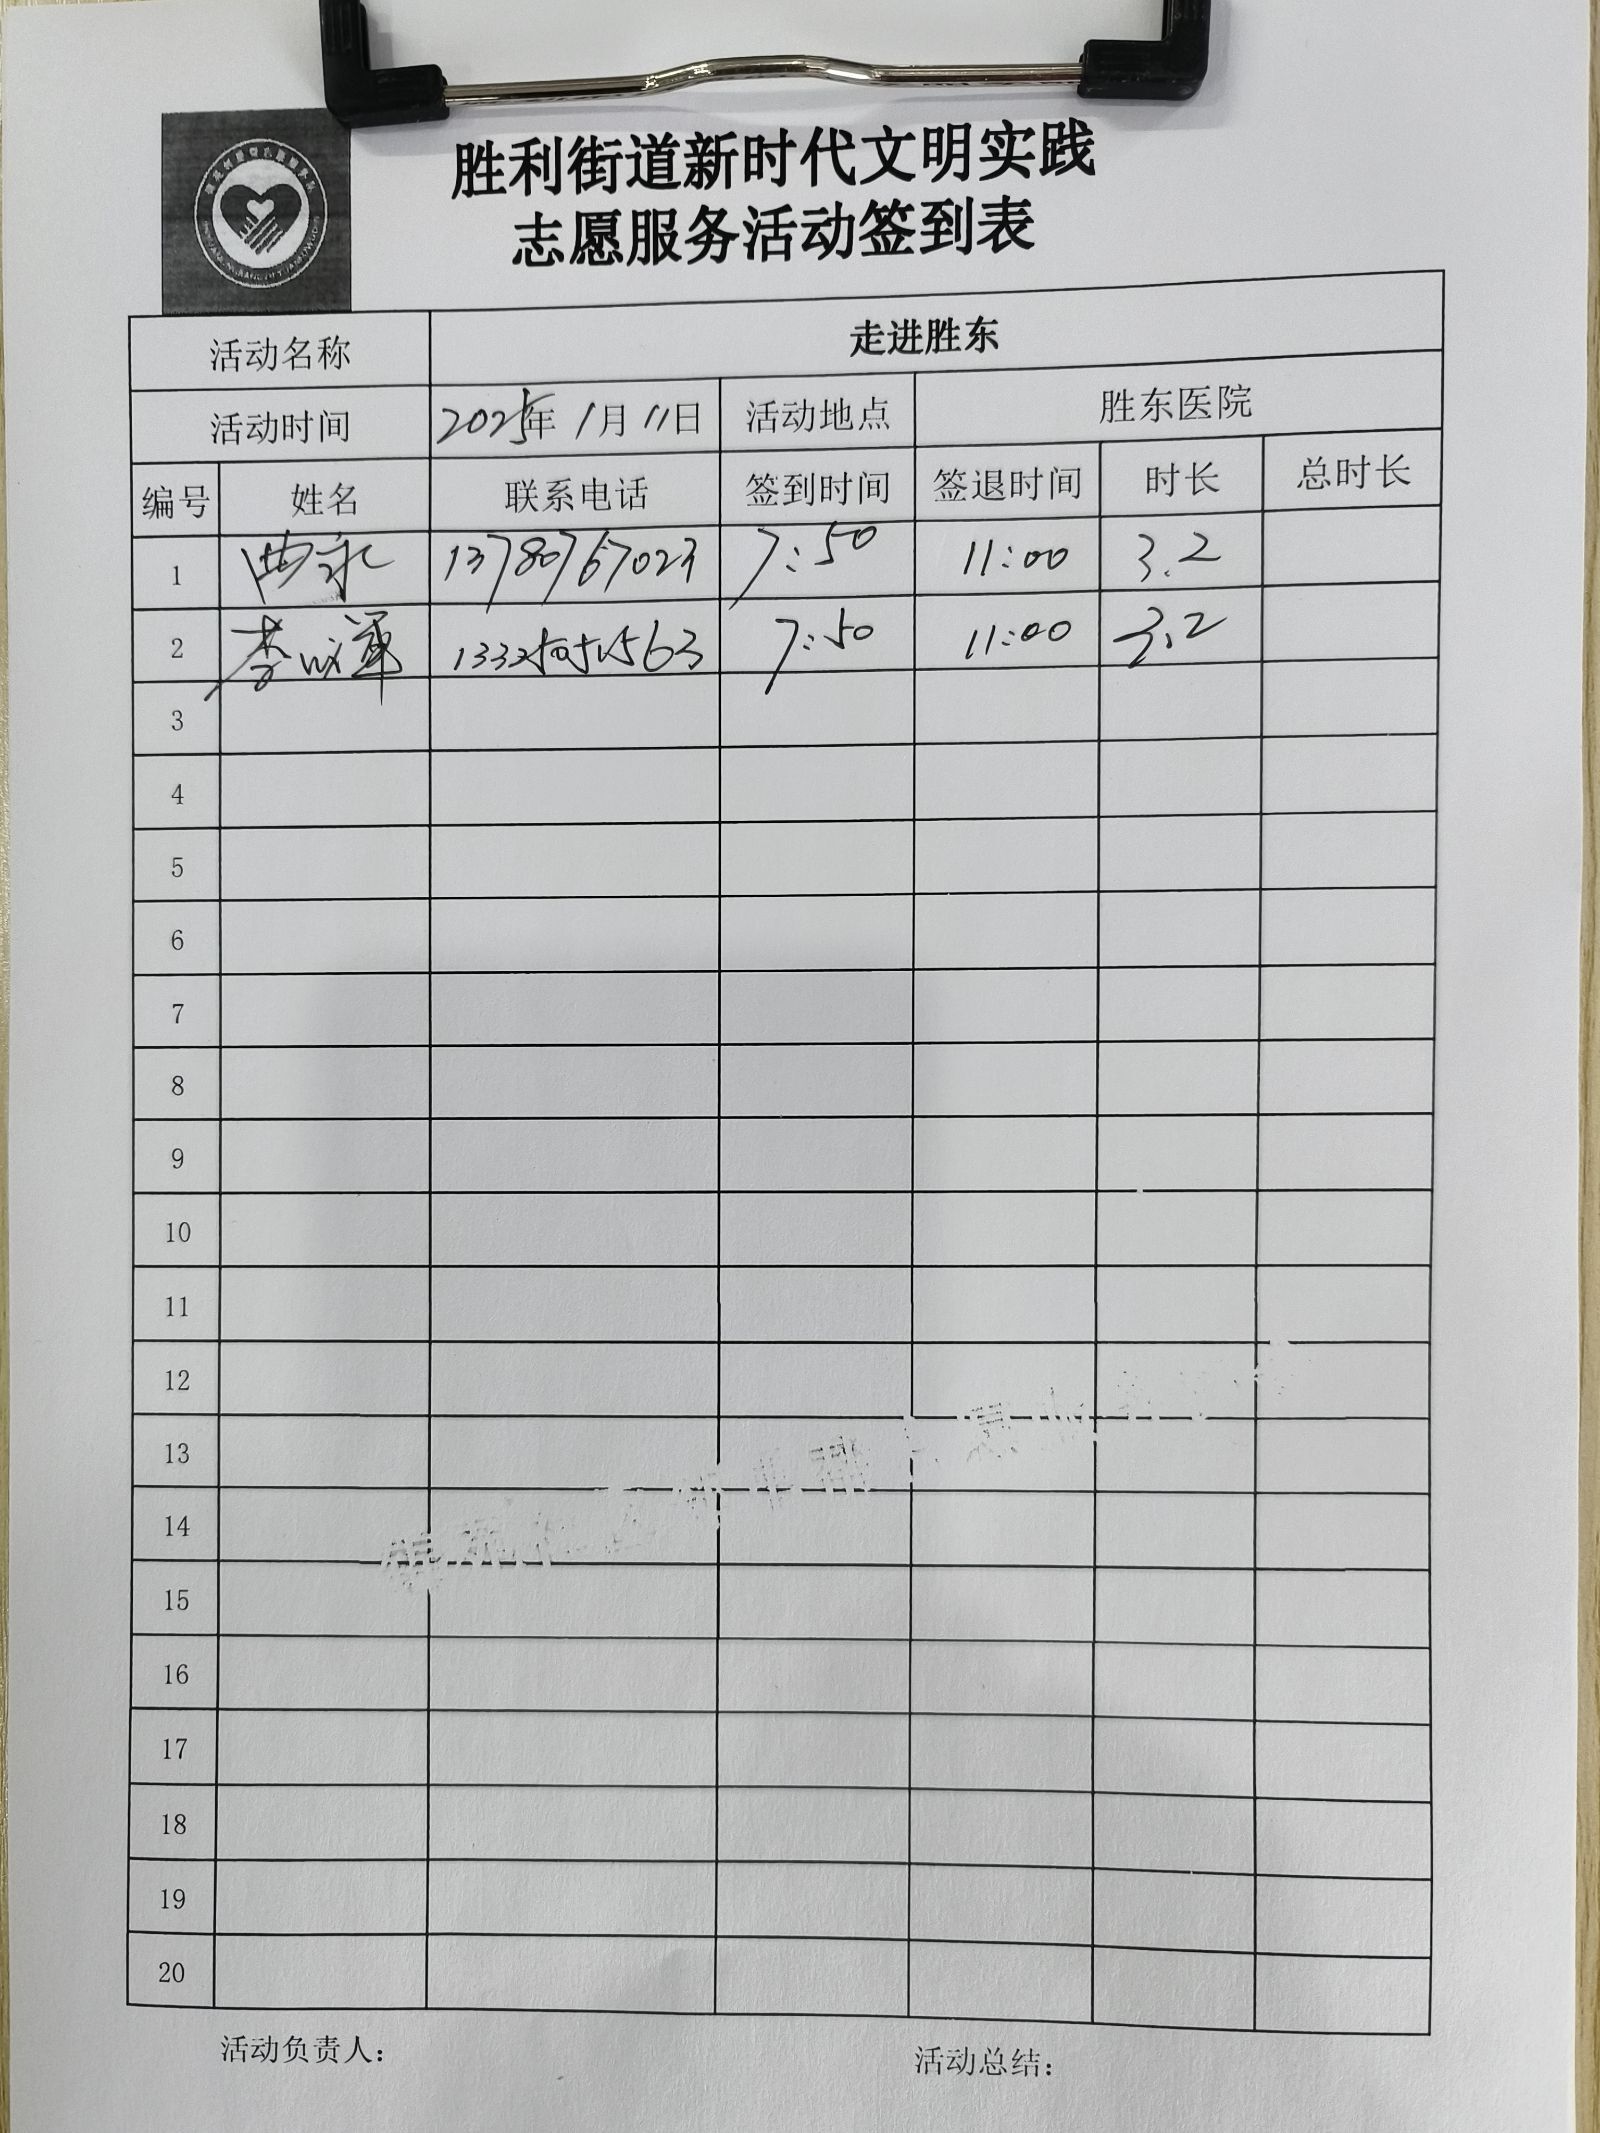 胜利街道新时代文明实践
志愿服务活动签到表
活动名称 走进胜东
活动时间 2025年1月11日 活动地点 胜东医院
编号 姓名 联系电话 签到时间 签退时间 时长 总时长
1 曲永 13780767023 7:50 11:00 3.2
2 李 7:50 11:00 3.2
3
4
5
6
7
8
9
10
11
12
13
14
15
16
17
18
19
20
活动负责人: 活动总结: